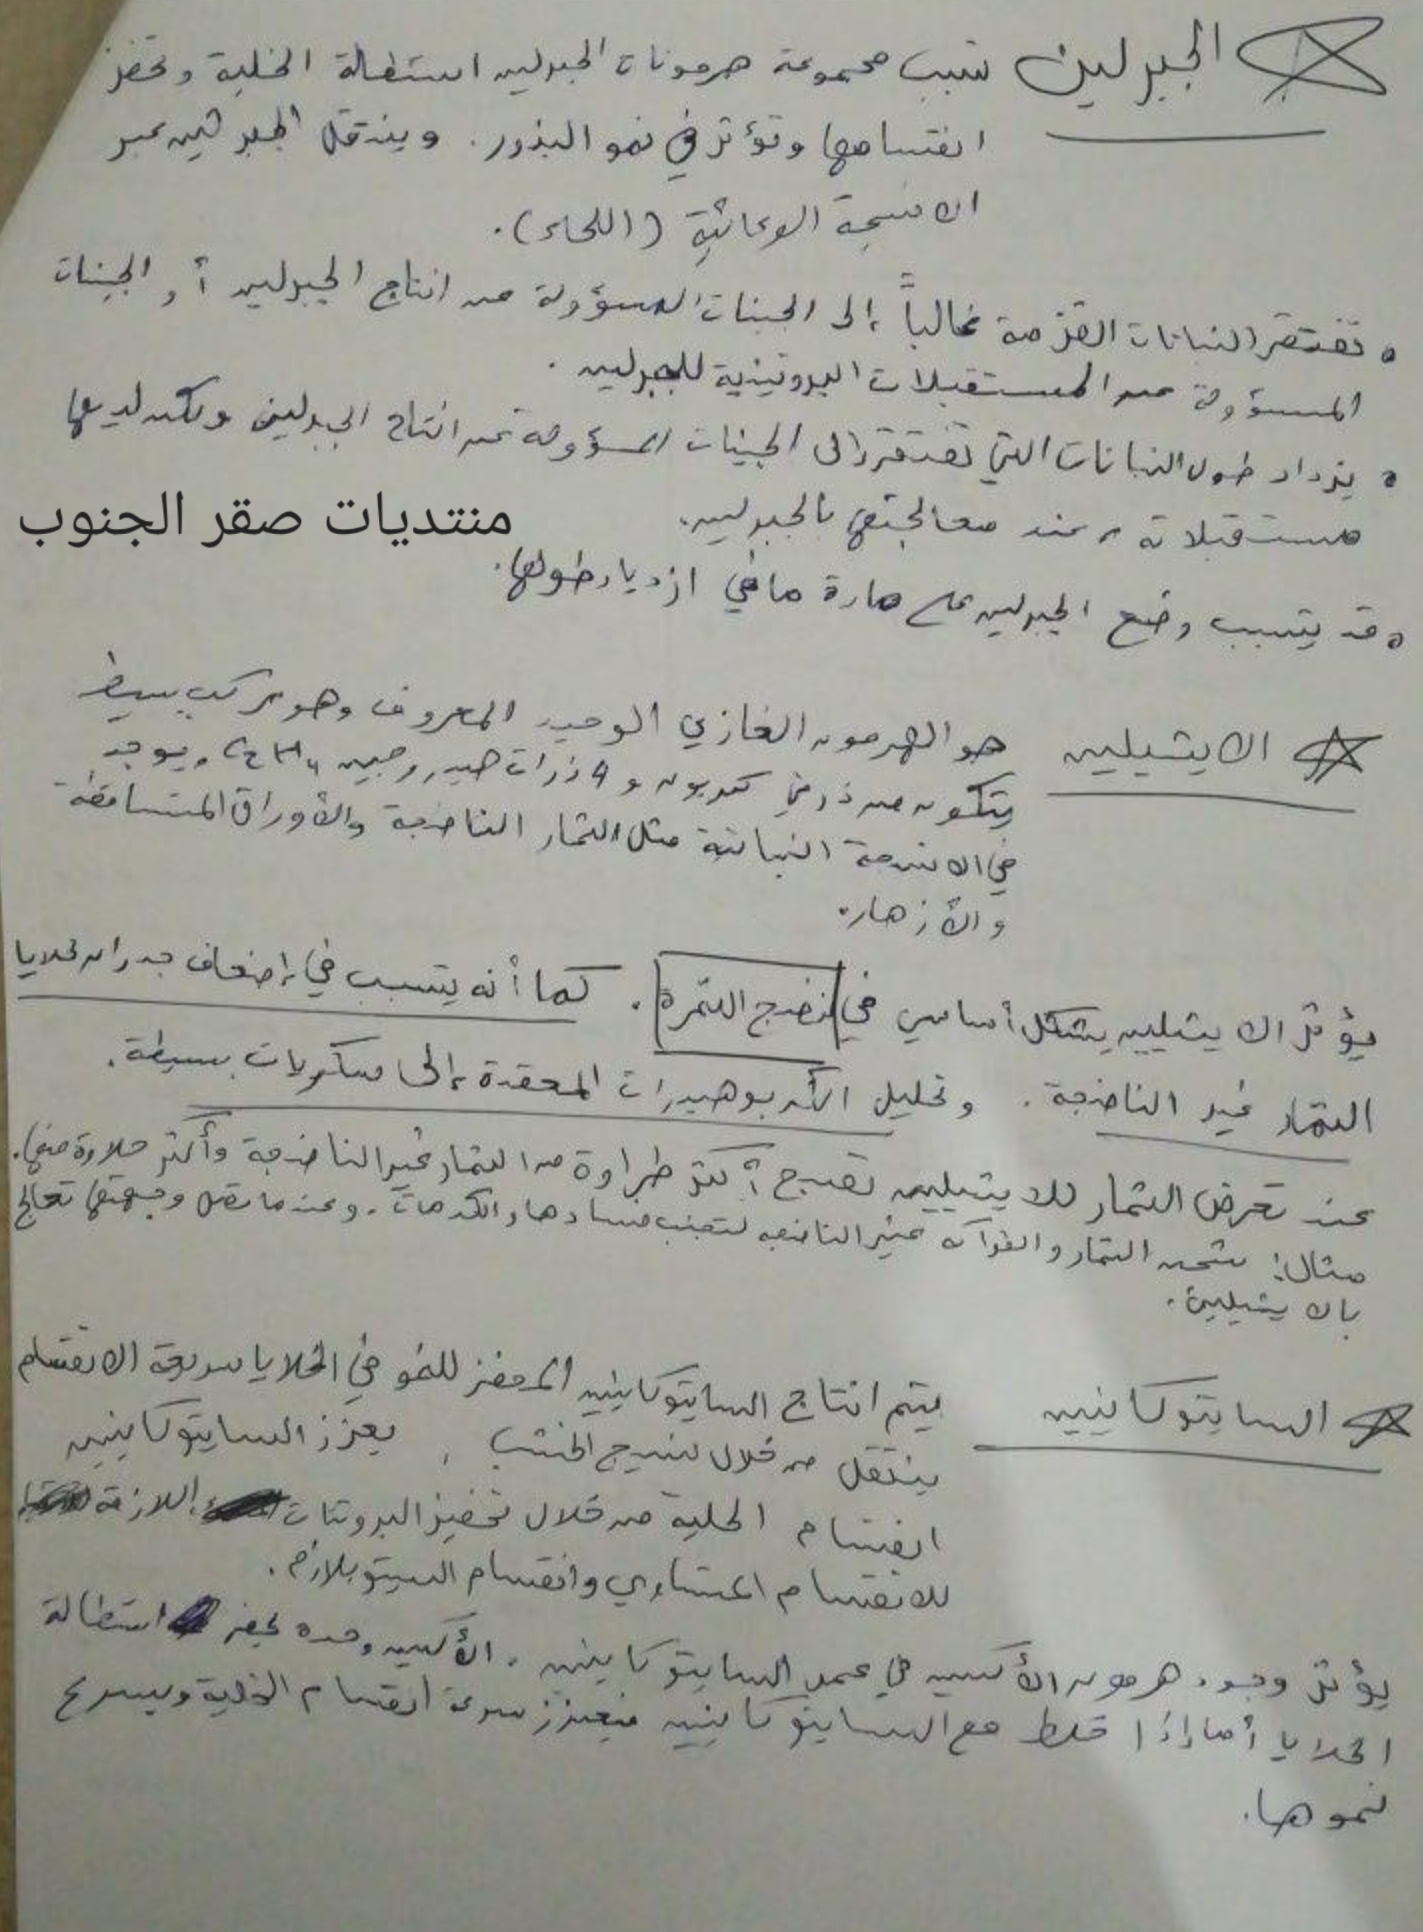 الجبرلين تسبب مجموعة هرمونات الجبرلين استطالة الخلية وتحفز
انقسامها وتؤثر في نمو البذور. وينتقل الجبرلين عبر
الانسجة الوعائية (اللحاء).
• تفتقر النباتات القزمة غالباً إلى الجينات المسؤولة عن انتاج الجبرلين أو الجينات
المسؤولة عن المستقبلات البروتينية للجبرلين.
• يزداد طول النباتات التي تفتقر إلى الجينات المسؤولة عن انتاج الجبرلين ولكن لديها
مستقبلاته، عند معالجتها بالجبرلين.
منتديات صقر الجنوب
• قد يتسبب وضع الجبرلين على مادة ما في ازدياد طولها.
الايثيلين هو الهرمون الغازي الوحيد المعروف وهو مركب بسيط
يتكون من ذرتي كربون و 4 ذرات هيدروجين C₂H₄. ويوجد
في الانسجة النباتية مثل الثمار الناضجة والأوراق المتساقطة
والأزهار.
يؤثر الايثيلين بشكل أساسي في نضج الثمرة. كما أنه يتسبب في إضعاف جدران خلايا
الثمار غير الناضجة. وتحليل الكربوهيدرات المعقدة إلى سكريات بسيطة.
عند تعرض الثمار للايثيلين تصبح أكثر طراوة من الثمار غير الناضجة وأكثر حلاوة منها.
مثال: شحن الثمار والفواكه غير الناضجه لتجنب فسادها والكدمات. وعندما تصل وجهتها تعالج
بالايثيلين.
السايتوكاينين يتم انتاج السايتوكاينين المحفز للنمو في الخلايا سريعة الانقسام
ينتقل من خلال نسيج الخشب، يعزز السايتوكاينين
انقسام الخلية من خلال تحفيز البروتينات اللازمة
للانقسام المتساوي وانقسام السيتوبلازم.
يؤثر وجود هرمون الأكسين في عمل السايتوكاينين. الأكسين وحده يحفز استطالة
الخلايا أما إذا خلط مع السايتوكاينين فيعزز سرعة انقسام الخلية ويسرع
نموها.